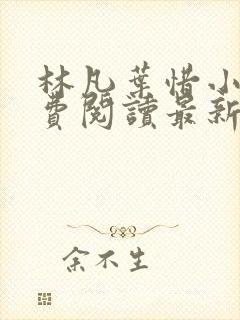 林凡葉惜小
費閱讀最新
余不生